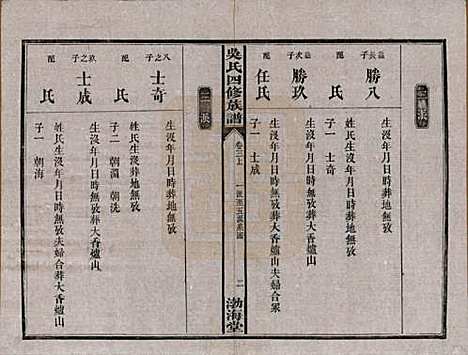 益長子
勝八
生沒年月日時葬地無攷
配
氏
姓氏生沒年月日時葬地無攷
益次子
勝玖
生沒年月日時無攷葬大香爐山
配
任氏
生沒年月日時無攷葬大香爐山夫婦合冢
子一 士成
吳氏四修族譜
卷三上
一派至五派系圖
二
渤海堂
八之子
士奇
生沒葬地無攷
配
氏
姓氏生沒年月日時葬地無攷
子二 朝淵 朝洗
玖之子
士成
生沒年月日時無攷葬大香爐山
配
氏
姓氏生沒年月日時無攷夫婦合葬大香爐山
子一 朝海